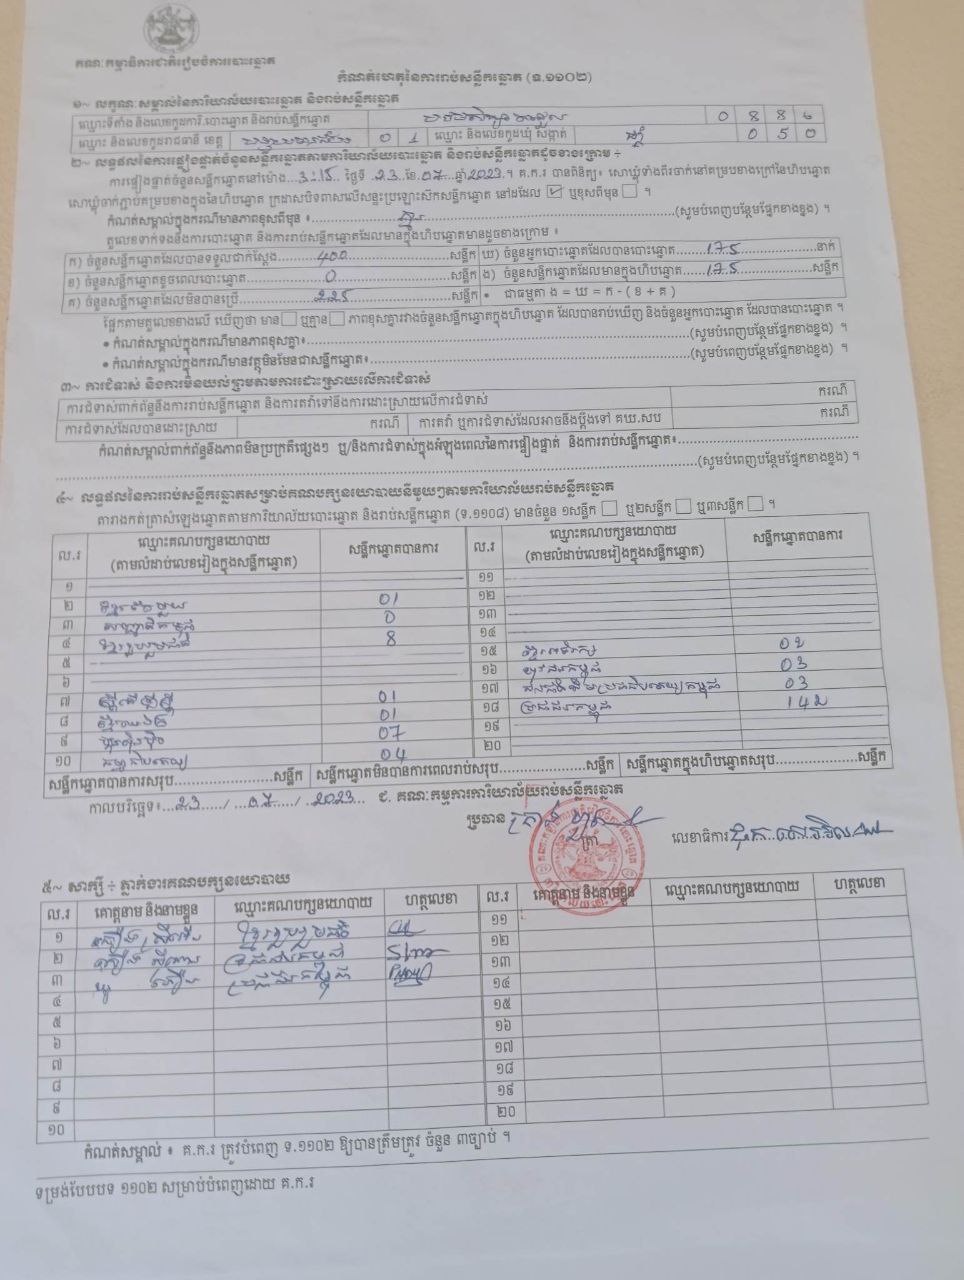 គណៈកម្មាធិការជាតិរៀបចំការបោះឆ្នោត
កំណត់ហេតុនៃការរាប់សន្លឹកឆ្នោត (ទ.១១០២)
១~ លក្ខណៈសម្គាល់នៃការិយាល័យបោះឆ្នោត និងរាប់សន្លឹកឆ្នោត
ឈ្មោះទីតាំង និងលេខកូដការិ.បោះឆ្នោត និងរាប់សន្លឹកឆ្នោត 0 8 8 6
ឈ្មោះ និងលេខកូដរាជធានី ខេត្ត 0 1 ឈ្មោះ និងលេខកូដឃុំ សង្កាត់ 0 5 0
២~ លទ្ធផលនៃការផ្ទៀងផ្ទាត់ចំនួនសន្លឹកឆ្នោតតាមការិយាល័យបោះឆ្នោត និងរាប់សន្លឹកឆ្នោតដូចខាងក្រោម ÷
ការផ្ទៀងផ្ទាត់ចំនួនសន្លឹកឆ្នោតនៅម៉ោង...3:15 ថ្ងៃទី 23 ខែ.07 ឆ្នាំ2023.។ គ.ក.រ បានពិនិត្យ៖ សោឃ្លុំទាំងពីរចាក់នៅគម្របខាងក្រៅនៃហិបឆ្នោត
សោឃ្លុំចាក់ភ្ជាប់គម្របខាងក្នុងនៃហិបឆ្នោត ក្រដាសបិទពាសលើសន្ទះប្រឡោះស៊កសន្លឹកឆ្នោត នៅដដែល ☑ ឬខុសពីមុន ☐ ។
កំណត់សម្គាល់ក្នុងករណីមានភាពខុសពីមុន ៖ គ្មាន (សូមបំពេញបន្ថែមផ្នែកខាងខ្នង) ។
តួលេខទាក់ទងនឹងការបោះឆ្នោត និងការរាប់សន្លឹកឆ្នោតដែលមានក្នុងហិបឆ្នោតមានដូចខាងក្រោម ៖
ក) ចំនួនសន្លឹកឆ្នោតដែលបានទទួលជាក់ស្តែង 400 សន្លឹក ឃ) ចំនួនអ្នកបោះឆ្នោតដែលបានបោះឆ្នោត 175 នាក់
ខ) ចំនួនសន្លឹកឆ្នោតខូចពេលបោះឆ្នោត 0 សន្លឹក ង) ចំនួនសន្លឹកឆ្នោតដែលមានក្នុងហិបឆ្នោត 175 សន្លឹក
គ) ចំនួនសន្លឹកឆ្នោតដែលមិនបានប្រើ 225 សន្លឹក • ជាធម្មតា ង = ឃ = ក - ( ខ + គ )
ផ្អែកតាមតួលេខខាងលើ ឃើញថា មាន ☐ ឬគ្មាន ☐ ភាពខុសគ្នារវាងចំនួនសន្លឹកឆ្នោតក្នុងហិបឆ្នោត ដែលបានរាប់ឃើញ និងចំនួនអ្នកបោះឆ្នោត ដែលបានបោះឆ្នោត ។
• កំណត់សម្គាល់ក្នុងករណីមានភាពខុសគ្នា៖ (សូមបំពេញបន្ថែមផ្នែកខាងខ្នង) ។
• កំណត់សម្គាល់ក្នុងករណីមានវត្ថុមិនមែនជាសន្លឹកឆ្នោត៖ (សូមបំពេញបន្ថែមផ្នែកខាងខ្នង) ។
៣~ ការជំទាស់ និងការមិនយល់ព្រមតាមការដោះស្រាយលើការជំទាស់
ការជំទាស់ពាក់ព័ន្ធនឹងការរាប់សន្លឹកឆ្នោត និងការតវ៉ាទៅនឹងការដោះស្រាយលើការជំទាស់ ករណី
ការជំទាស់ដែលបានដោះស្រាយ ករណី ការតវ៉ា ឬការជំទាស់ដែលអាចនឹងប្តឹងទៅ គឃ.សប ករណី
កំណត់សម្គាល់ពាក់ព័ន្ធនឹងភាពមិនប្រក្រតីផ្សេងៗ ឬ/និងការជំទាស់ក្នុងអំឡុងពេលនៃការផ្ទៀងផ្ទាត់ និងការរាប់សន្លឹកឆ្នោត៖
(សូមបំពេញបន្ថែមផ្នែកខាងខ្នង) ។
៤~ លទ្ធផលនៃការរាប់សន្លឹកឆ្នោតសម្រាប់គណបក្សនយោបាយនីមួយៗតាមការិយាល័យរាប់សន្លឹកឆ្នោត
តារាងកត់ត្រាសំឡេងឆ្នោតតាមការិយាល័យបោះឆ្នោត និងរាប់សន្លឹកឆ្នោត (ទ.១១០៨) មានចំនួន ១សន្លឹក ☐ ឬ២សន្លឹក ☐ ឬ៣សន្លឹក ☐ ។
ល.រ ឈ្មោះគណបក្សនយោបាយ (តាមលំដាប់លេខរៀងក្នុងសន្លឹកឆ្នោត) សន្លឹកឆ្នោតបានការ ល.រ ឈ្មោះគណបក្សនយោបាយ (តាមលំដាប់លេខរៀងក្នុងសន្លឹកឆ្នោត) សន្លឹកឆ្នោតបានការ
១ ១១
២ ខ្មែរតែមួយ 01 ១២
៣ សញ្ជាតិកម្ពុជា 0 ១៣
៤ ខ្មែររួបរួមជាតិ 8 ១៤
៥ ១៥ 02
៦ ១៦ យុវជនកម្ពុជា 03
៧ 01 ១៧ ជនជាតិដើមប្រជាធិបតេយ្យកម្ពុជា 03
៨ 01 ១៨ ប្រជាជនកម្ពុជា 142
៩ ហ៊្វុនស៊ិនប៉ិច 07 ១៩
១០ 04 20
សន្លឹកឆ្នោតបានការសរុប សន្លឹក សន្លឹកឆ្នោតមិនបានការពេលរាប់សរុប សន្លឹក សន្លឹកឆ្នោតក្នុងហិបឆ្នោតសរុប សន្លឹក
កាលបរិច្ឆេទ៖ 23 / 07 / 2023 ជ. គណៈកម្មការការិយាល័យរាប់សន្លឹកឆ្នោត
ប្រធាន ត្រា លេខាធិការ
៥~ សាក្សី ÷ ភ្នាក់ងារគណបក្សនយោបាយ
ល.រ គោត្តនាម និងនាមខ្លួន ឈ្មោះគណបក្សនយោបាយ ហត្ថលេខា ល.រ គោត្តនាម និងនាមខ្លួន ឈ្មោះគណបក្សនយោបាយ ហត្ថលេខា
១ ខ្មែររួបរួមជាតិ ១១
២ ប្រជាជនកម្ពុជា ១២
៣ ប្រជាជនកម្ពុជា ១៣
៤ ១៤
៥ ១៥
៦ ១៦
៧ ១៧
៨ ១៨
៩ ១៩
១០ 20
កំណត់សម្គាល់ ៖ គ.ក.រ ត្រូវបំពេញ ទ.១១០២ ឱ្យបានត្រឹមត្រូវ ចំនួន ៣ច្បាប់ ។
ទម្រង់បែបបទ ១១០២ សម្រាប់បំពេញដោយ គ.ក.រ